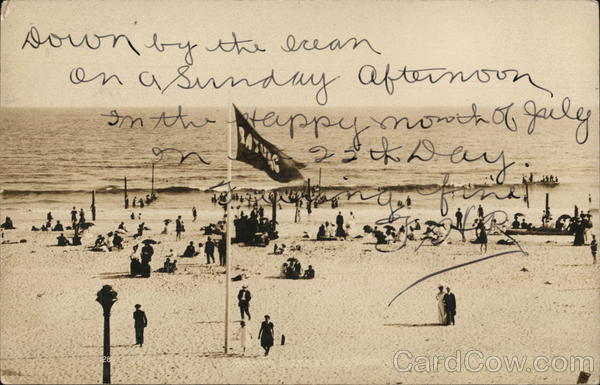 Down by the ocean
On a Sunday Afternoon
In the Happy month of July
In 25th Day.
fine
CardCow.com